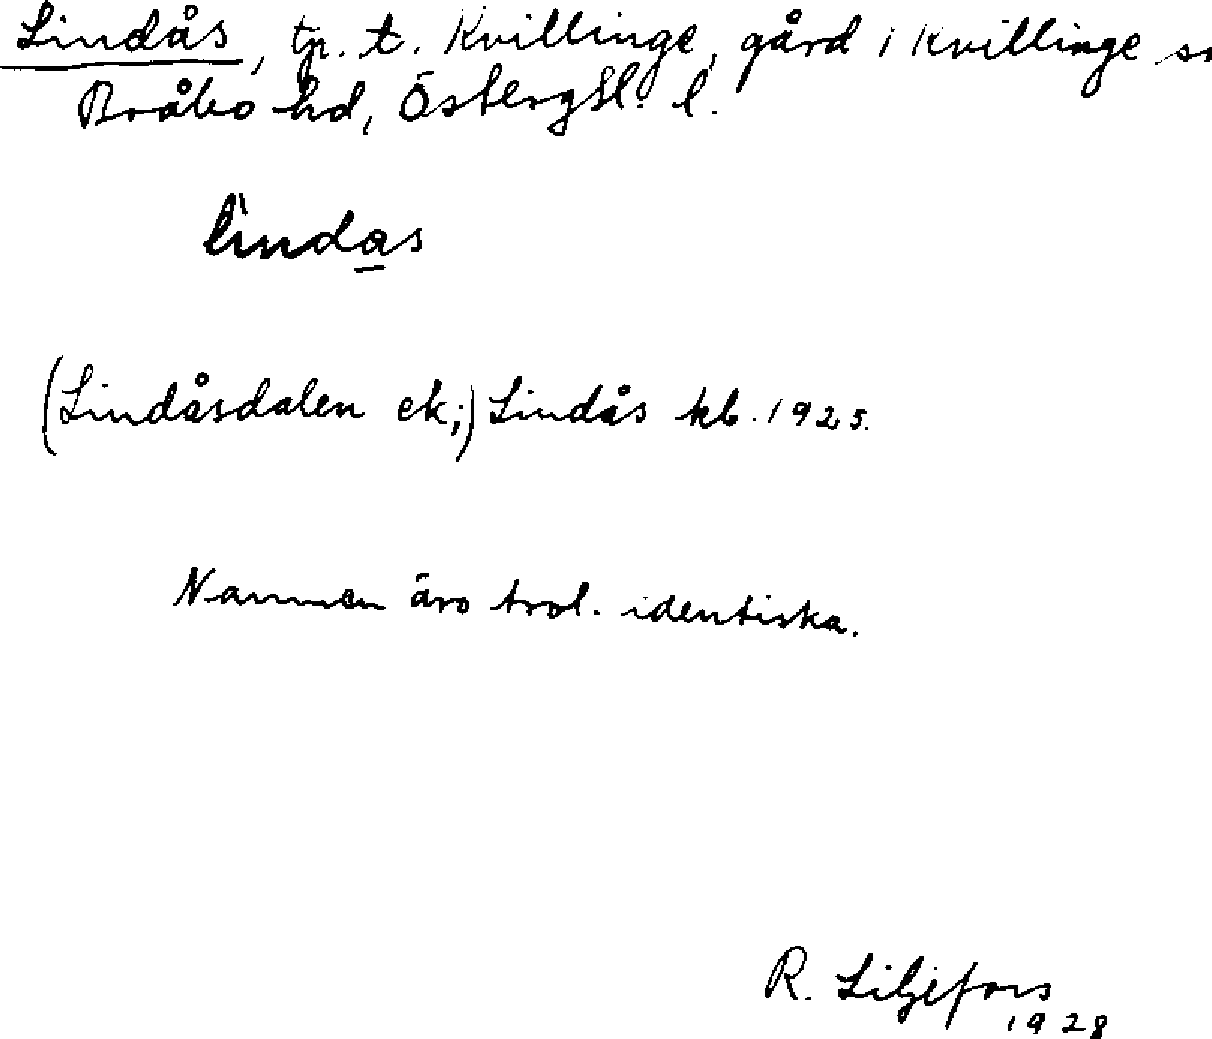 Lindås, tp. t. Kvillinge, gård i Kvillinge sn
Bråbo hd, Östergötl. l.
lìndas
(Lindåsdalen ek;) Lindås kb. 1925.
Namnen äro trol. identiska.
R. Liljefors
1928